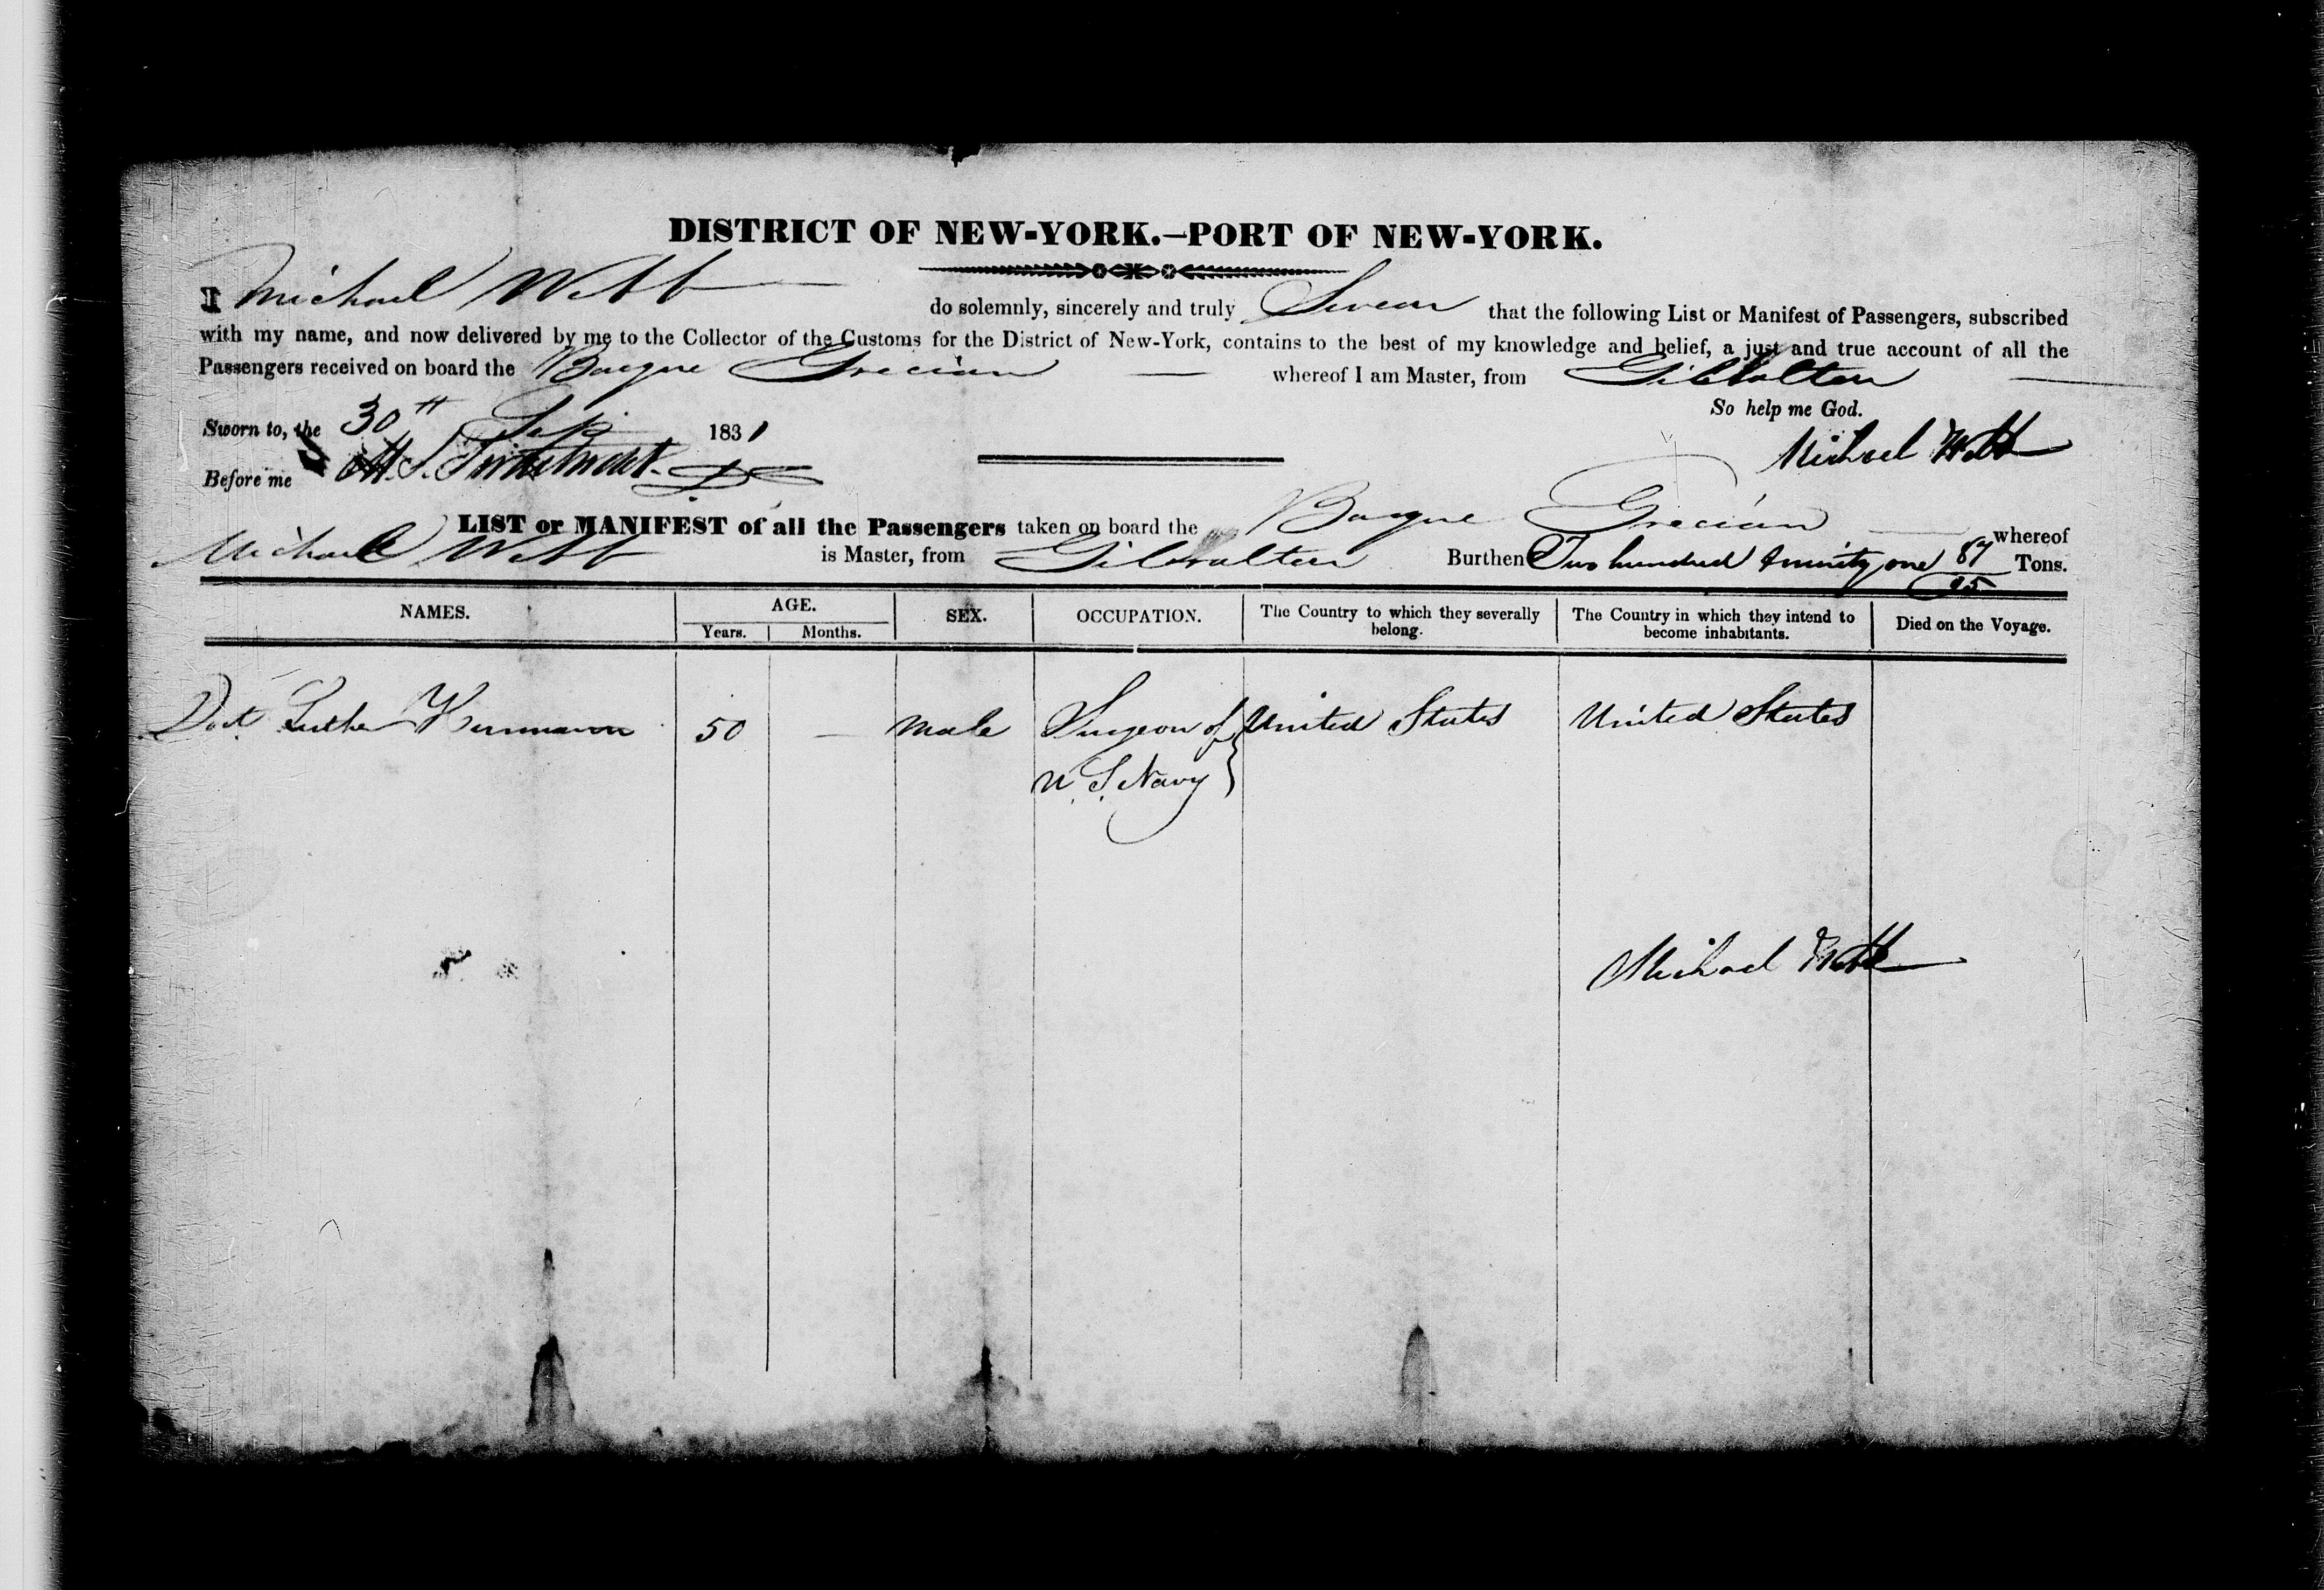 DISTRICT OF NEW-YORK.—PORT OF NEW-YORK.
I Michael Webb do solemnly, sincerely and truly Swear that the following List or Manifest of Passengers, subscribed
with my name, and now delivered by me to the Collector of the Customs for the District of New-York, contains to the best of my knowledge and belief, a just and true account of all the
Passengers received on board the Barque Grecian whereof I am Master, from Gibralter
So help me God.
Sworn to, the 30th Sep 1831
Michael Webb
Before me
LIST or MANIFEST of all the Passengers taken on board the Barque Grecian whereof
Michael Webb is Master, from Gibralter Burthen Two hundred & ninity one 87/95 Tons.
NAMES. AGE. SEX. OCCUPATION. The Country to which they severally belong. The Country in which they intend to become inhabitants. Died on the Voyage.
Years. Months.
Doct Luther 50 — Male Surgeon of United States United States
U.S. Navy
Michael Webb